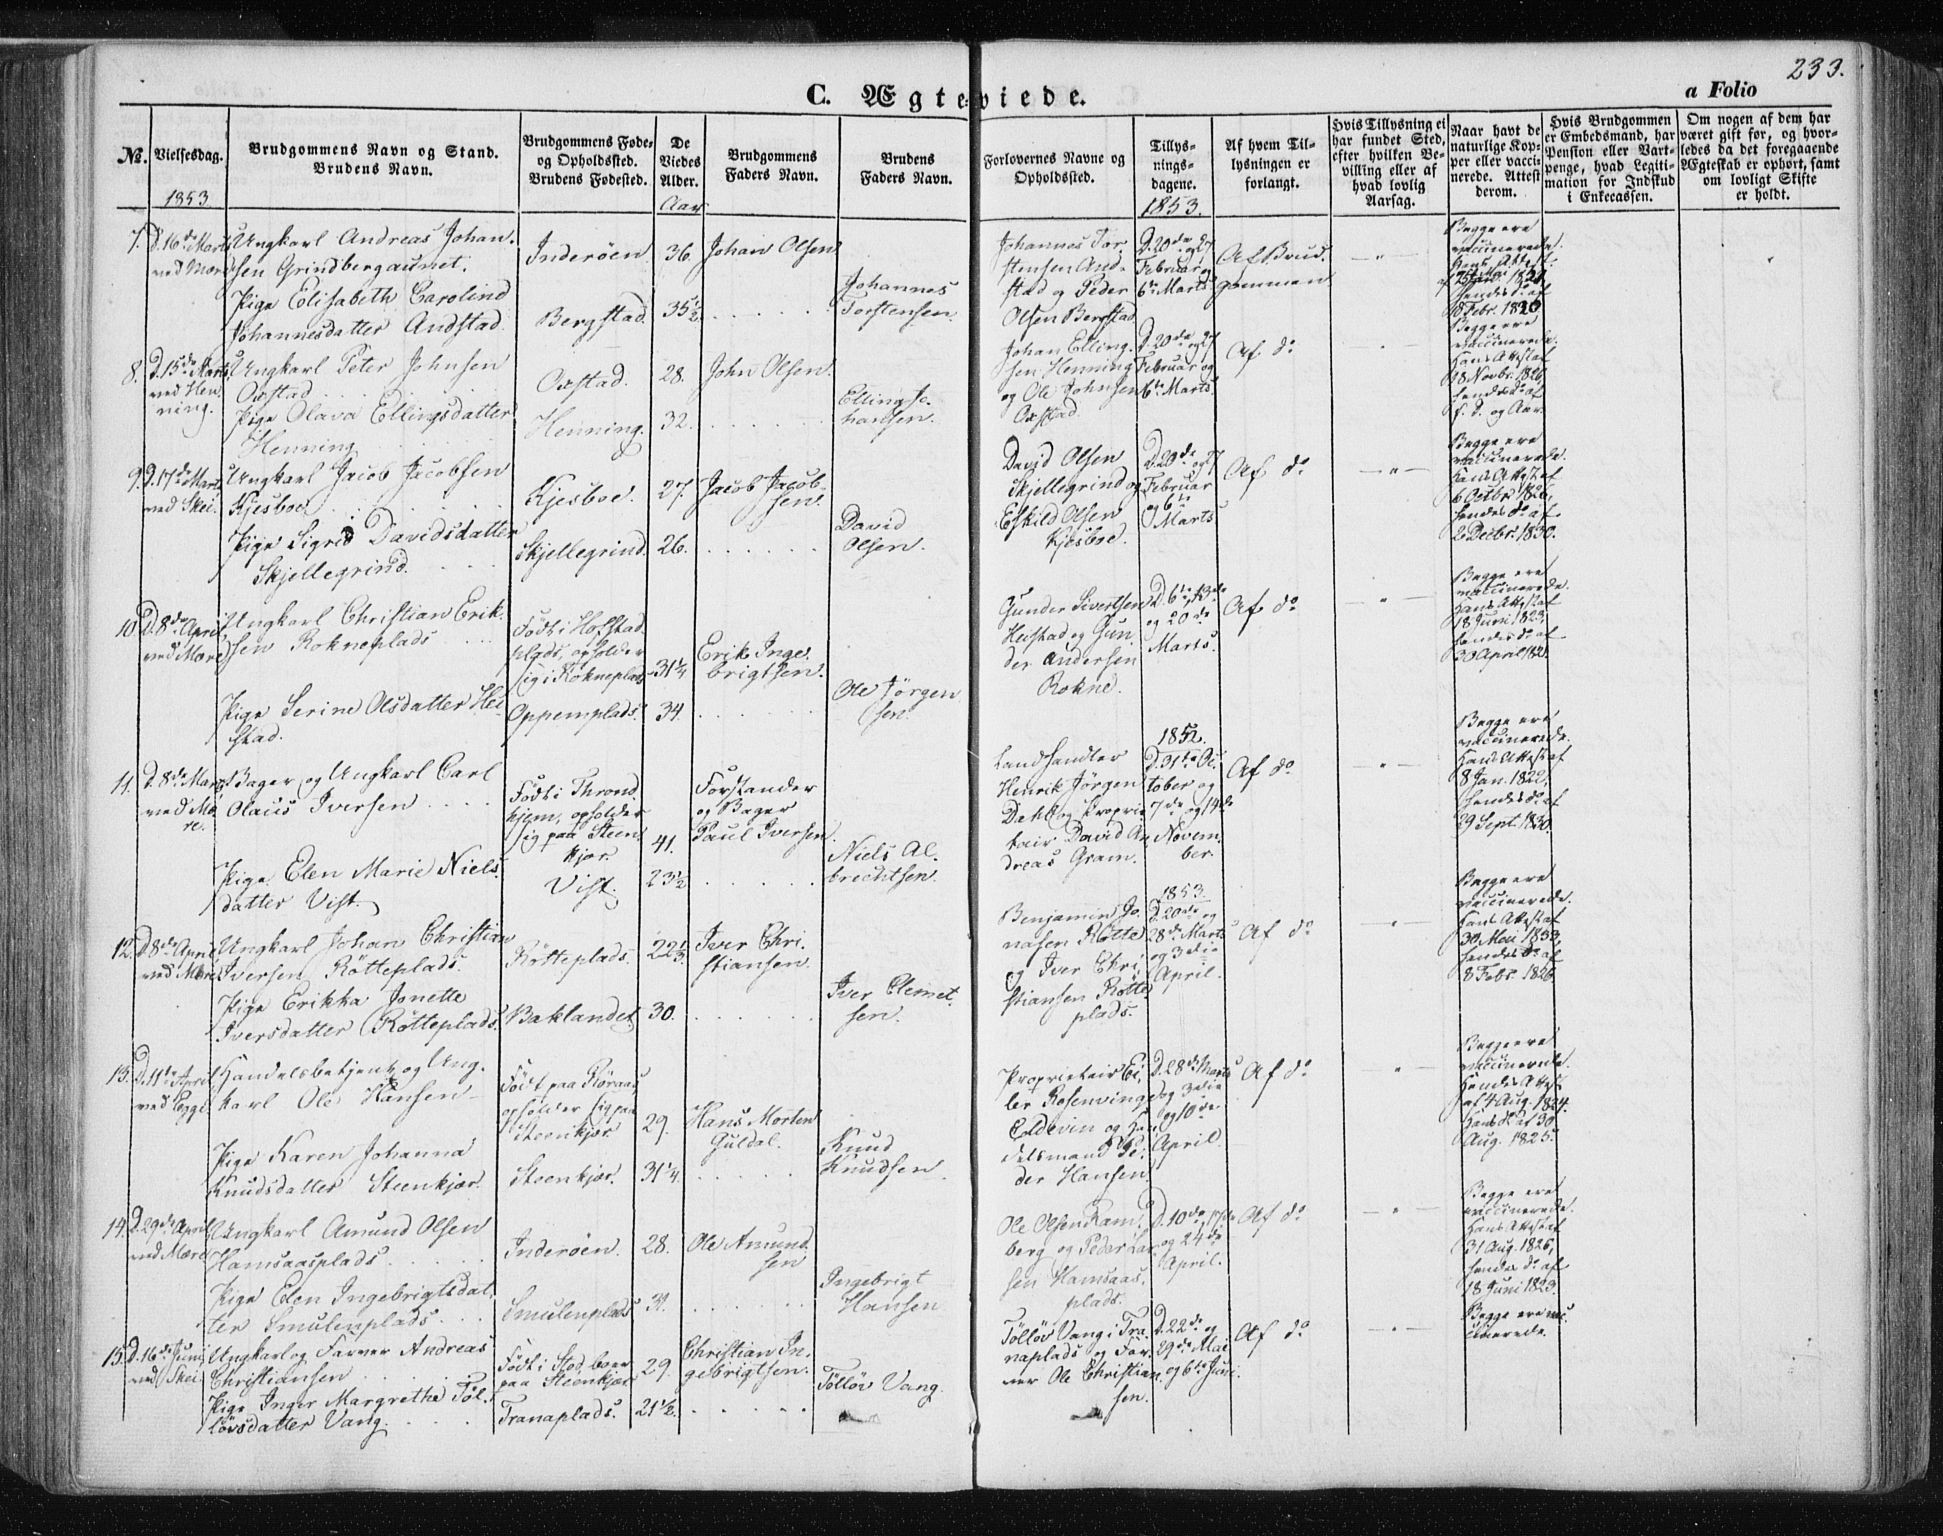 233.
C. Ægteviede.
a Folio
No.
Vielsesdag.
Brudgommens Navn og Stand.
Brudens Navn.
Brudgommens Føde-
og Opholdssted.
Brudens Fødested.
De
Viedes
Alder.
Brudgommens
Faders Navn.
Brudens
Faders Navn.
Forlovernes Navne og
Opholdssted.
Tillys-
nings-
dagene.
Af hvem Til-
lysningen er
forlangt.
Hvis Tillysning ei
har fundet Sted,
efter hvilken Be-
villing eller af
hvad lovlig
Aarsag.
Naar havt de
naturlige Kop-
per eller vacci-
nerede. Attest
derom.
Hvis Brudgommen
er Embedsmand, har
Pension eller Vart-
penge, hvad Legiti-
mation for Indskud
i Enkecassen.
Om nogen af dem har
været gift før, og hvor-
ledes da det foregaaende
Ægteskab er ophørt, samt
om lovligt Skifte
er holdt.
1853
Aar
1853.
7.
D. 16de Marts
ved Mære
Ungkarl Andreas Johan-
sen Grindbergaunet.
Pige Elisabeth Carolind
Johannesdatter Andstad.
Inderøen
Bergstad.
36.
35 1/2
Johan Olsen
Johannes
Torstensen.
Johannes Tor
stensen And-
stad og Peder
Olsen Bergstad
D. 20de og 27
Februar og
6te Marts
Af Brud-
gommen
Begge ere
vaccinerede.
Hans Attest
hendes do af
8 Febr. 1820
8.
D. 15de Marts
ved Hen-
ning.
Ungkarl Peter Johnsen
Oxstad.
Pige Olava Ellingsdatter
Henning
Oxstad.
Henning.
28.
32.
John Olsen.
Elling Jo-
hansen.
Johan Elling-
sen Henning
og Ole Johnsen
Oxstad.
D. 20de og 27
Februar og
6te Marts
Af do
Begge ere
vaccinerede.
Hans Attest af
18 Novbr. 1826
hendes do af
s. D. og Aar.
9.
D. 17de Marts
ved Skei.
Ungkarl Jacob Jacobsen
Kjesboe
Pige Sigrid Davidsdatter
Skjellegrind.
Kjesboe.
Skjellegrind.
27.
26.
Jacob Jacob-
sen.
David
Olsen.
David Olsen
Skjellegrind og
Eskild Olsen
Kjesboe.
D. 20de og 27
Februar
og 6te
Marts
Af do
Begge ere
vaccinerede.
Hans Attest af
6 Octbr. 1826,
hendes do af
2 Decbr. 1830.
10.
D. 8de April
ved Mære
Ungkarl Christian Erik-
sen Rokneplads
Pige Serine Olsdatter Hei-
stad.
Født i Hofstad
plads, opholder
sig i Rokneplads
Oppemplads.
31 1/4
34.
Erik Inge-
brigtsen.
Ole Jørgen
sen.
Gunder Sivertsen
Heistad og Gun-
der Andersen
Rokne.
D. 6te, 13de
og 20de
Marts.
Af do
Begge ere
vaccinerede.
Hans Attest af
18 Juni 1823,
hendes do af
30 April 1821.
11.
D. 8de Marts
ved Mæ-
re.
Bager og Ungkarl Carl
Olaus Iversen
Pige Elen Marie Niels-
datter Vist.
Født i Thrond-
hjem, opholder
sig paa Steen
kjær
Vist.
41.
23 1/2
Forstander
og Bager
Paul Iversen.
Niels Al-
brechtsen.
Landhandler
Henrik Jørgen
Dehl og Proprie
tair David An
dreas Gram.
1852.
D. 31te Oc-
tober og
7de og 14de
Novem-
ber.
Af do
Begge ere
vaccinerede.
Hans Attest af
8 Jan. 1822,
hendes do af
29 Sept. 1830.
12.
D. 8de April
ved Mære
Ungkarl Johan Christian
Iversen Rötteplads.
Pige Erikka Jonette
Iversdatter Rötteplads.
Rötteplads.
Baklandet
22 1/3
30.
Iver Chri-
stiansen.
Iver Clemet-
sen.
Benjamin Jo-
nasen Rötte
og Iver Chri-
stiansen Rötte-
plads.
1853.
D. 20de og
28de Marts
og 3die
April.
Af do
Begge ere
vaccinerede.
Hans Attest af
30 Mai 1833,
hendes do af
8 Febr. 1826
13.
D. 11te April
ved Egge
Handelsbetjent og Ung-
karl Ole Hansen
Pige Karen Johanna
Knudsdatter Steenkjær.
Født paa Røraas,
opholder sig paa
Steenkjær
Steenkjær.
29.
31 1/4.
Hans Morten
Guldal.
Knud
Knudsen.
Proprietair Ei-
ler Rosenvinge
Coldevin og Han-
delsmand Pe-
der Hansen.
D. 28de Marts
og 3die
og 10de
April.
Af do
Begge ere
vaccinerede.
Hendes Attest
af 4 Aug. 1824.
Hans do af 30
Aug. 1825.
14.
D. 29de April
ved Mære
Ungkarl Amund Olsen
Hamsaasplads
Pige Elen Ingebrigtsdat-
ter Smulenplads.
Inderøen.
Smulenplads
28.
31.
Ole Amund-
sen
Ingebrigt
Hansen
Ole Olsen Ram-
berg og Peder Lar-
sen Hamsaas-
plads.
D. 10de, 17de
og 24de
April.
Af do
Begge ere
vaccinerede.
Hans Attest af
31 Aug. 1826,
hendes do af
18 Juni 1823.
15.
D. 16de Juni
ved Skei.
Ungkarl og Farver Andreas
Christiansen
Pige Inger Margrethe Töl-
lövsdatter Vang.
Født i Stod, boer
paa Steenkjær
Tranaplads.
29.
21 1/2.
Christian In-
gebrigtsen.
Töllöv Vang.
Töllöv Vang i Tra-
naplads og Far-
ver Ole Christian-
sen.
D. 22de og
29de Mai
og 6te Juni.
Af do
Begge ere vac-
cinerede.